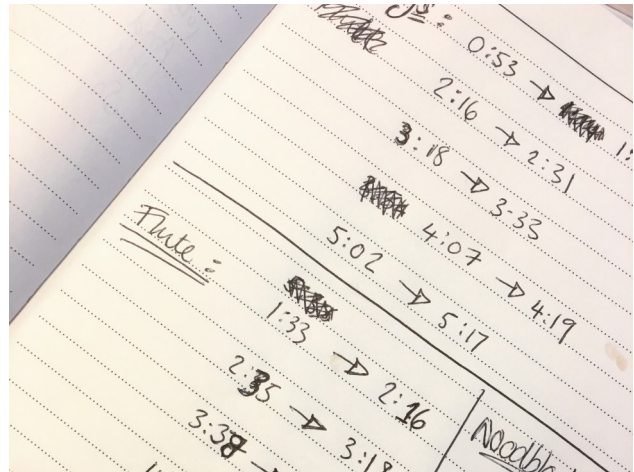 0:53 → 1:
2:16 → 2:31
3:18 → 3-33
4:07 → 4:19
5:02 → 5:17
Flute:
1:33 → 2:16
2:35 → 3:18
3:38 →